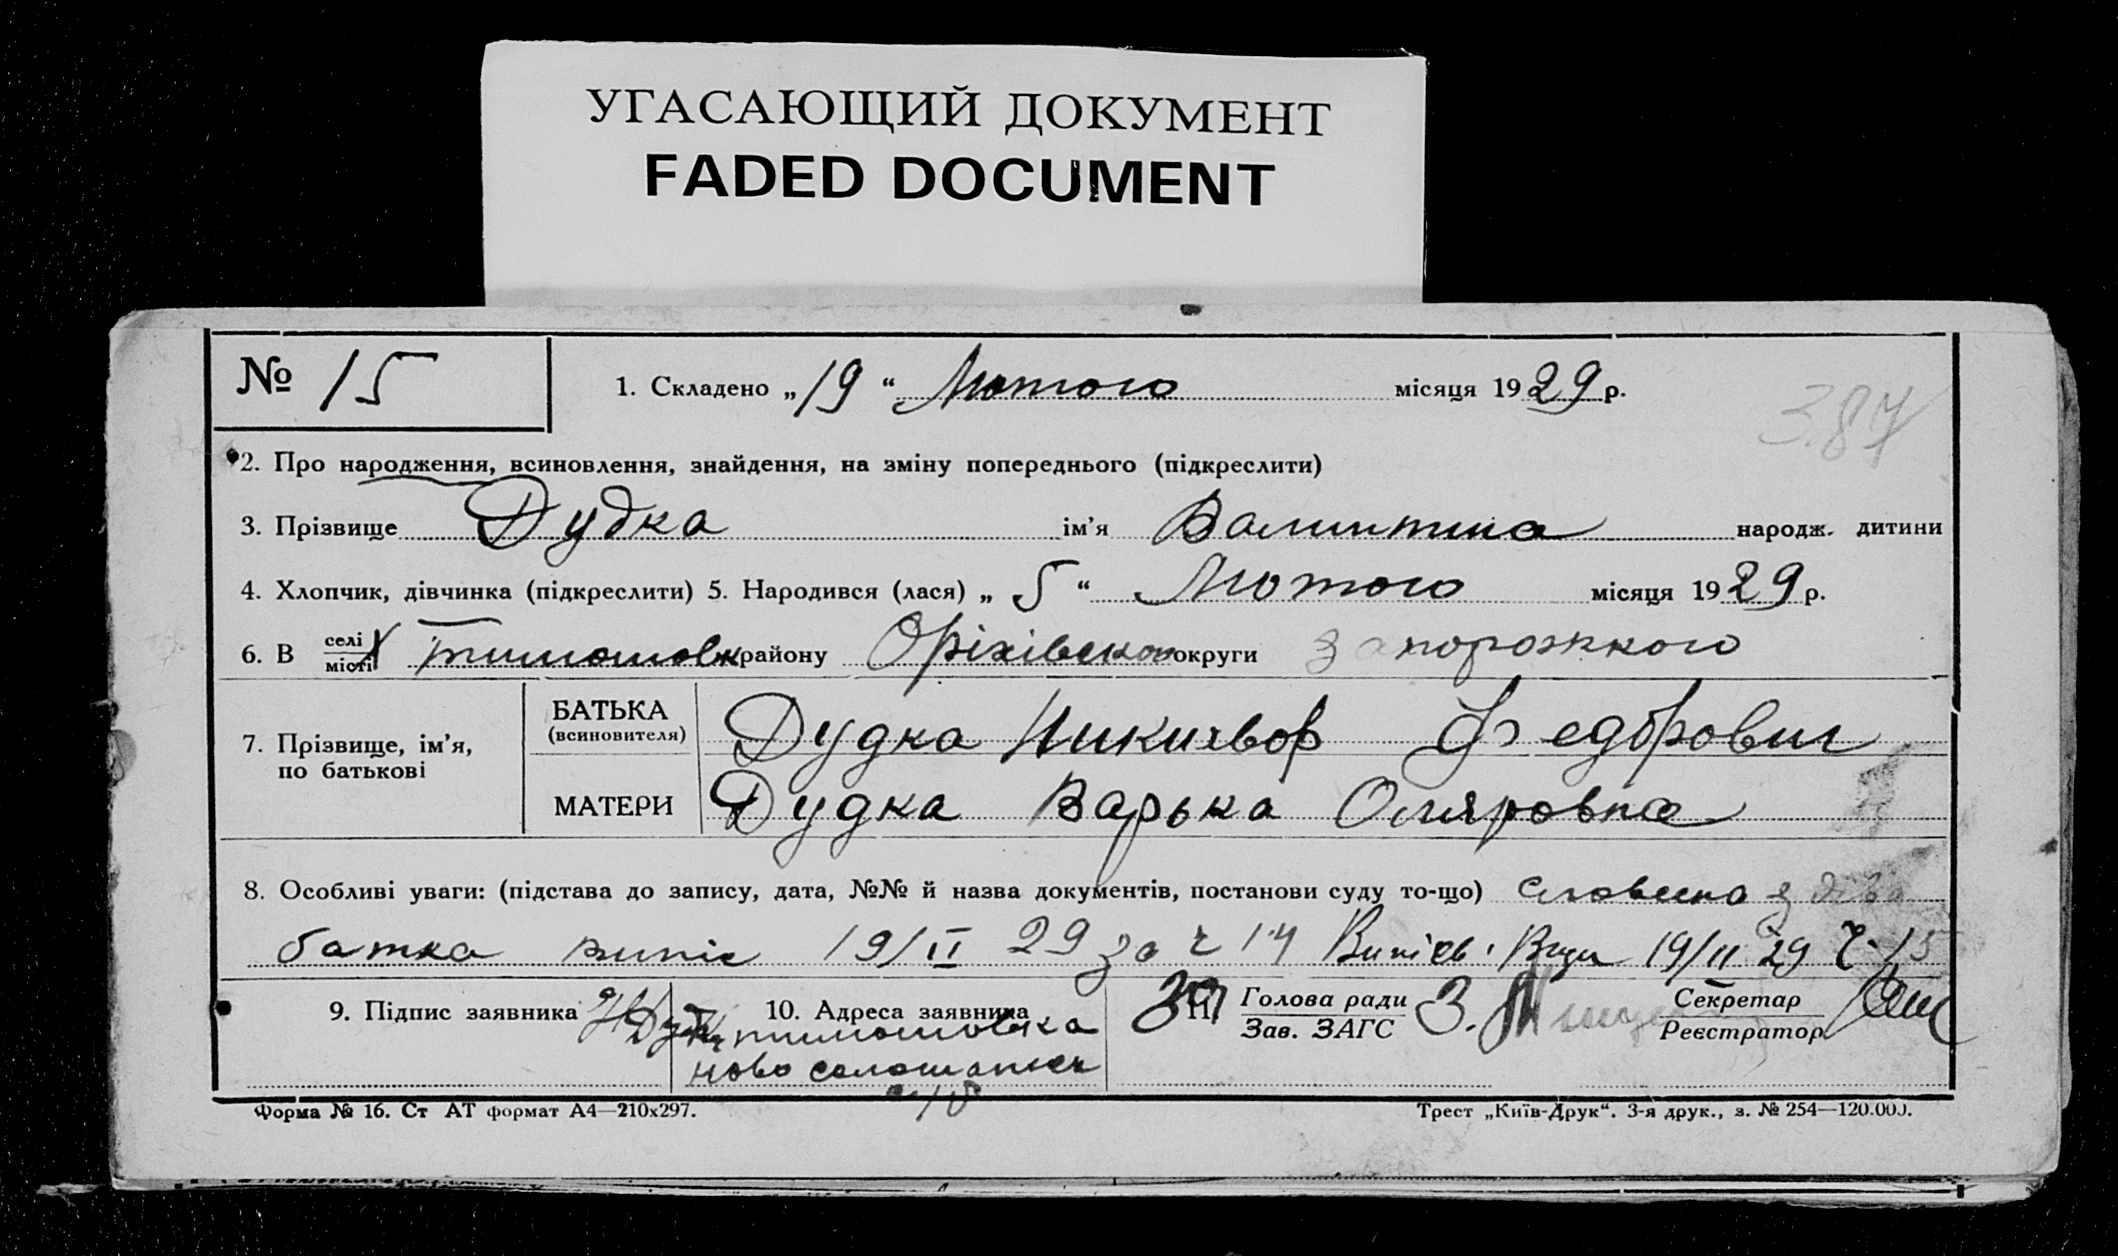 УГАСАЮЩИЙ ДОКУМЕНТ
FADED DOCUMENT
№ 15 1. Складено „19“ Лютого місяця 1929 р.
387
2. Про народження, всиновлення, знайдення, на зміну попереднього (підкреслити)
3. Прізвище Дудка ім’я Валинтина народж. дитини
4. Хлопчик, дівчинка (підкреслити) 5. Народився (лася) „5“ Лютого місяця 1929 р.
6. В селі місті Тимошовк району Оріхівского округи Запорожкого
7. Прізвище, ім’я, по батькові
БАТЬКА (всиновителя) Дудка Никихвор Федорович
МАТЕРИ Дудка Варька Оляровна
8. Особливі уваги: (підстава до запису, дата, №№ й назва документів, постанови суду то-що) Словесна
батка випис 19/II 29 за ч 14 19/II 29 Ч. 15
9. Підпис заявника 10. Адреса заявника Голова ради Зав. ЗАГС Секретар Реєстратор
тимошовка
ново
Форма № 16. Ст АТ формат А4—210х297. Трест „Київ-Друк“. 3-я друк., з. № 254—120.000.